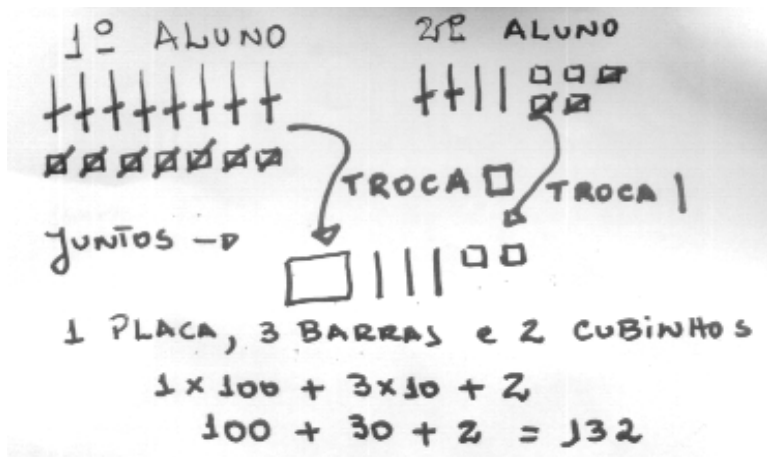 1º ALUNO
2º ALUNO
TROCA
TROCA
JUNTOS
1 PLACA, 3 BARRAS e 2 CUBINHOS
1 x 100 + 3x10 + 2
100 + 30 + 2 = 132